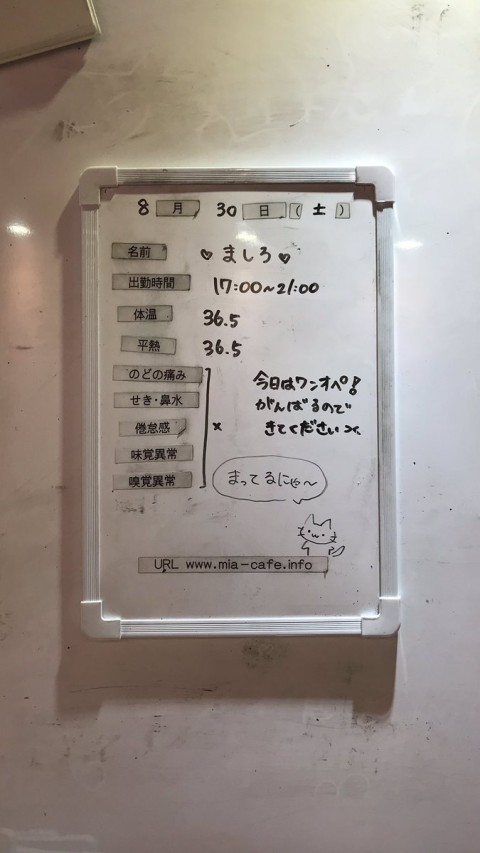 8月 30日(土)
名前 ♡ましろ♡
出勤時間 17:00~21:00
体温 36.5
平熱 36.5
のどの痛み
せき・鼻水
倦怠感 ×
味覚異常
嗅覚異常
今日はワンオペ!
がんばるので
きてください
まってるにゃ~
URL www.mia-cafe.info